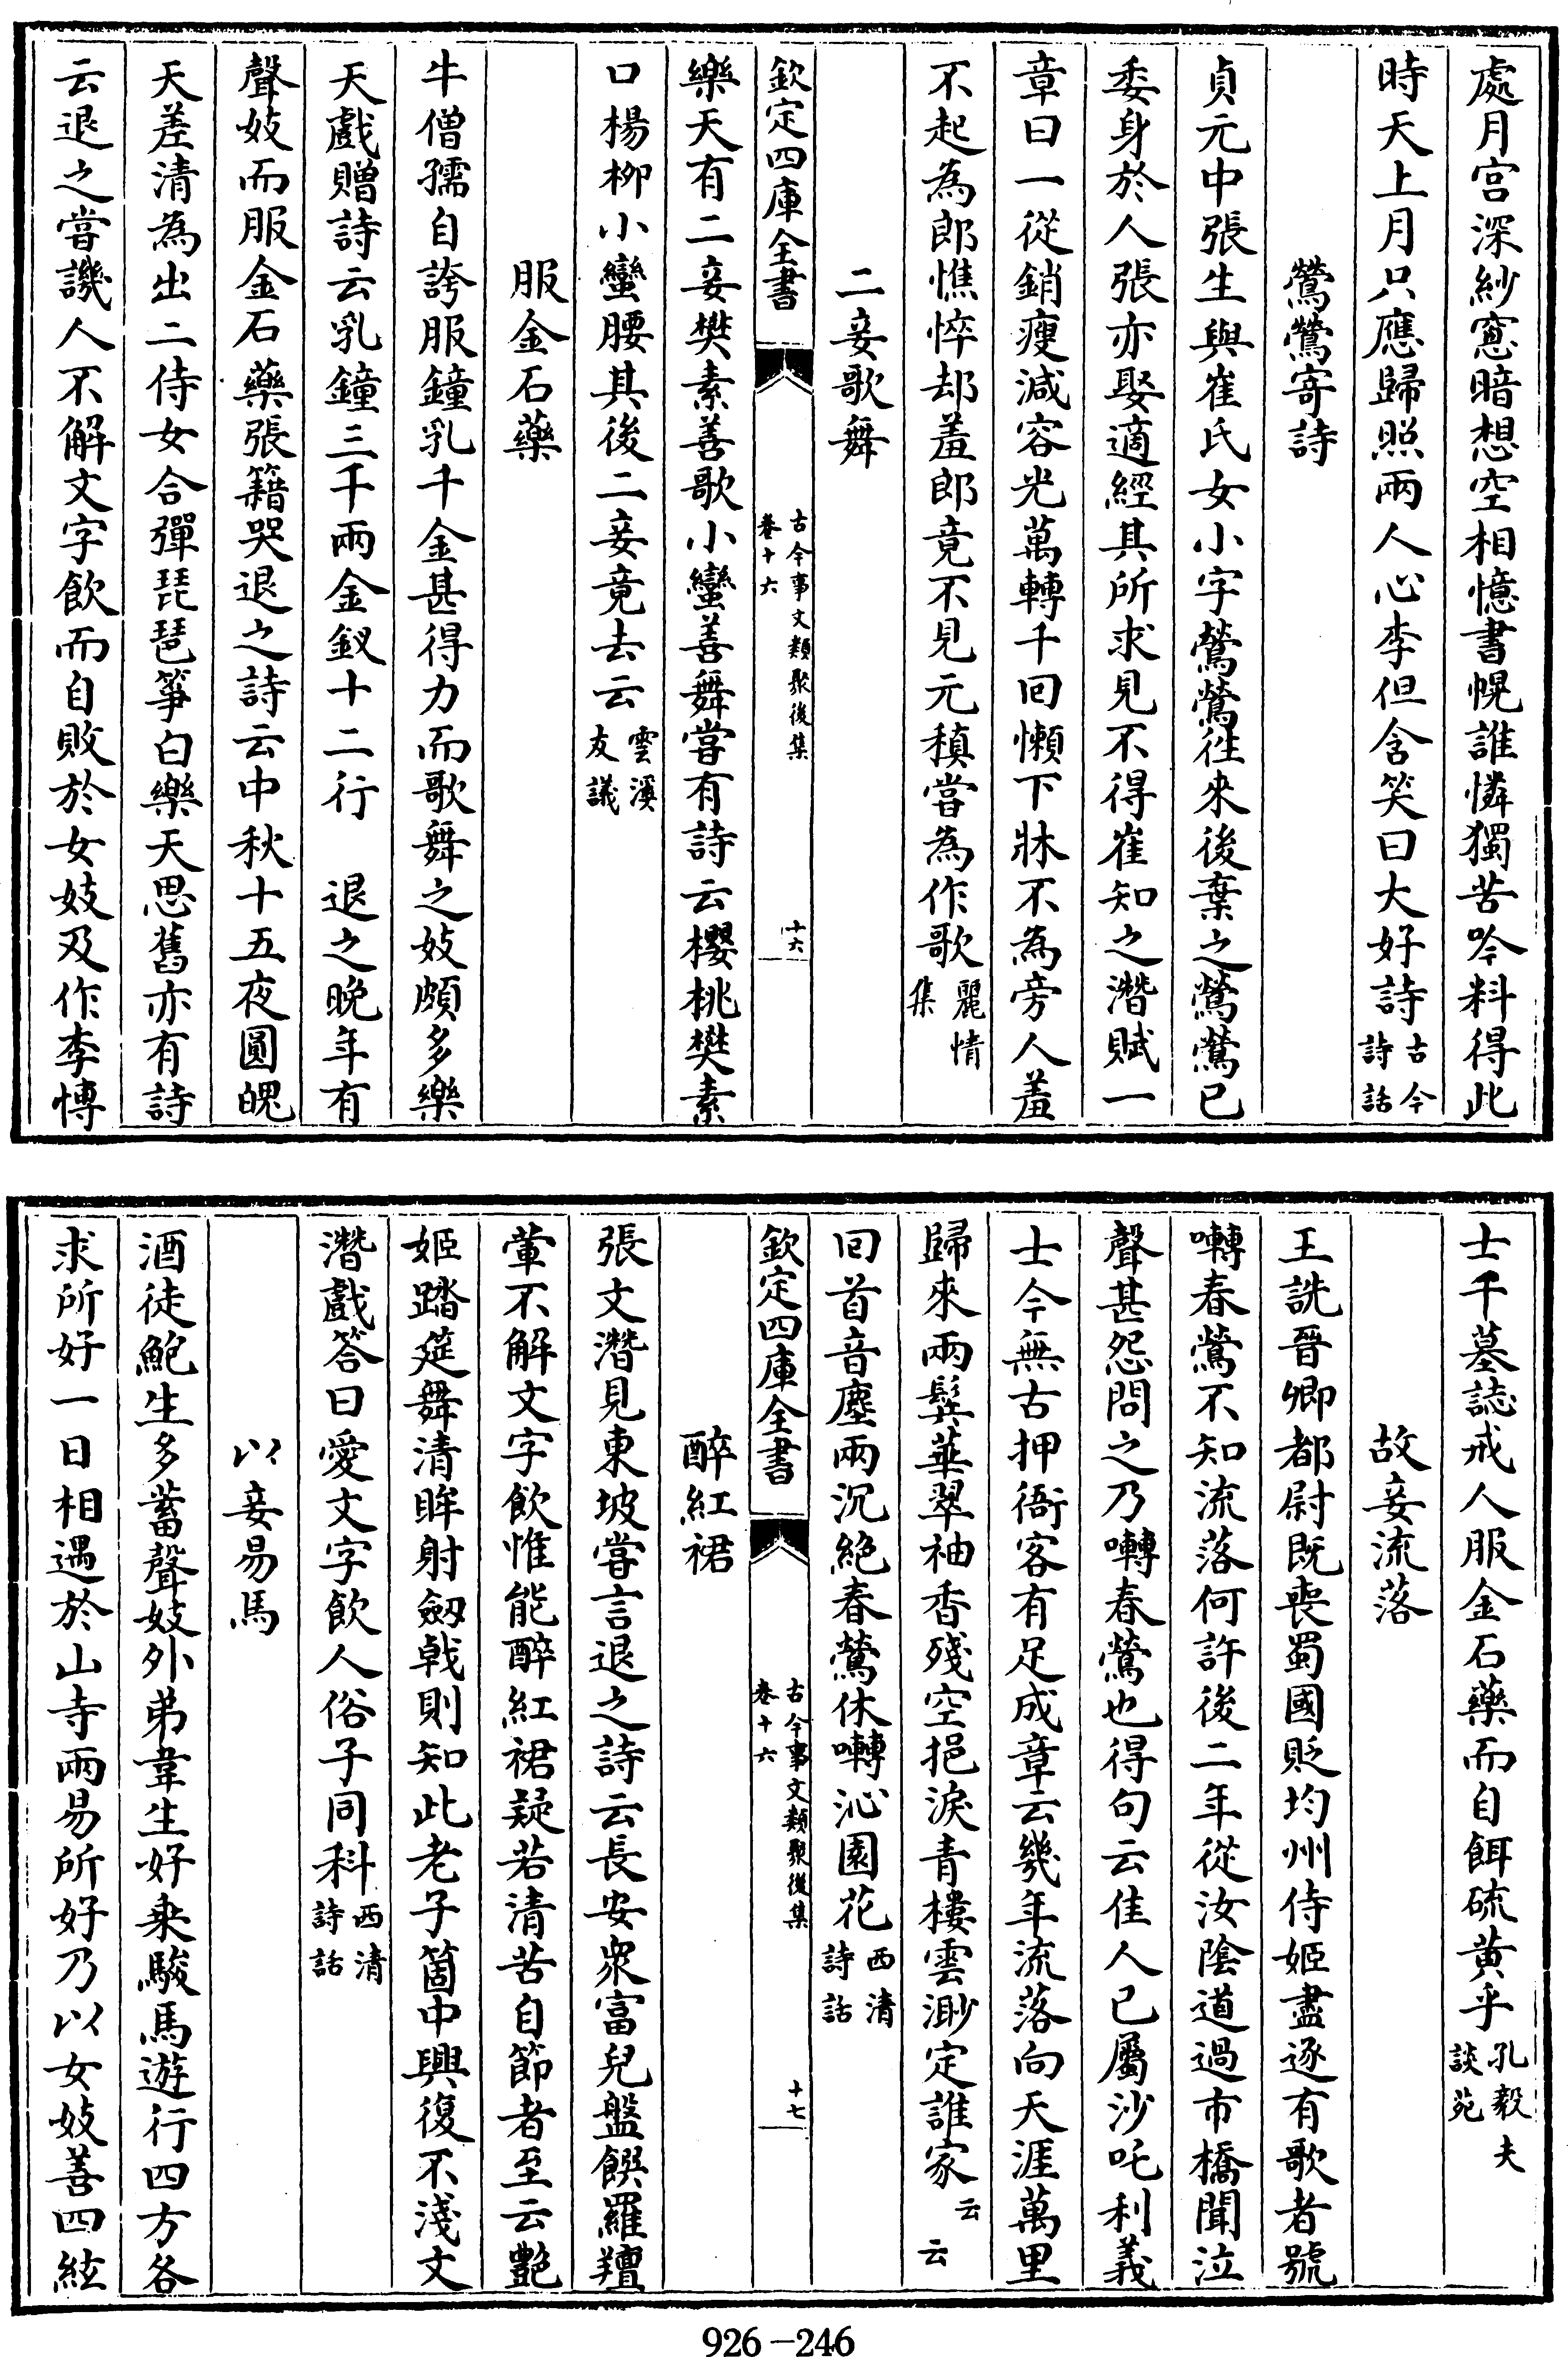 處月宫深紗窓暗想空相憶書幌誰憐獨苦吟料得此
時天上月只應歸照兩人心李但含笑曰大好詩古今詩話
鶯鶯寄詩
貞元中張生與崔氏女小字鶯鶯徃來後棄之鶯鶯已
委身於人張亦娶適經其所求見不得崔知之潛賦一
章曰一從銷瘦減容光萬轉千囘懶下牀不為旁人羞
不起為郎憔悴却羞郎竟不見元稹嘗為作歌麗情集
二妾歌舞
欽定四庫全書
古今事文類聚後集
卷十六
十六
樂天有二妾樊素善歌小蠻善舞嘗有詩云櫻桃樊素
口楊柳小蠻腰其後二妾竟去云雲溪友議
服金石藥
牛僧孺自誇服鐘乳千金甚得力而歌舞之妓頗多樂
天戲贈詩云乳鐘三千兩金釵十二行　退之晚年有
聲妓而服金石藥張籍哭退之詩云中秋十五夜圓魄
天差清為出二侍女合彈琵琶箏白樂天思舊亦有詩
云退之嘗譏人不解文字飲而自敗於女妓及作李愽
士千墓誌戒人服金石藥而自餌硫黃乎孔毅夫談苑
故妾流落
王詵晉卿都尉既喪蜀國貶均州侍姬盡逐有歌者號
囀春鶯不知流落何許後二年從汝陰道過市橋聞泣
聲甚怨問之乃囀春鶯也得句云佳人已屬沙吒利義
士今無古押衙客有足成章云幾年流落向天涯萬里
歸來兩鬂華翠袖香殘空挹淚青樓雲渺定誰家云云
囘首音塵兩沉絶春鶯休囀沁園花西清詩話
欽定四庫全書
古今事文類聚後集
卷十六
十七
醉紅裙
張文潛見東坡嘗言退之詩云長安衆富兒盤饌羅羶
葷不解文字飲惟能醉紅裙疑若清苦自節者至云艷
姬踏筵舞清眸射劔㦸則知此老子箇中興復不淺文
潛戲答曰愛文字飲人俗子同科西清詩話
以妾易馬
酒徒鮑生多蓄聲妓外弟韋生好乗駿馬遊行四方各
求所好一日相遇於山寺兩易所好乃以女妓善四絃
926-246